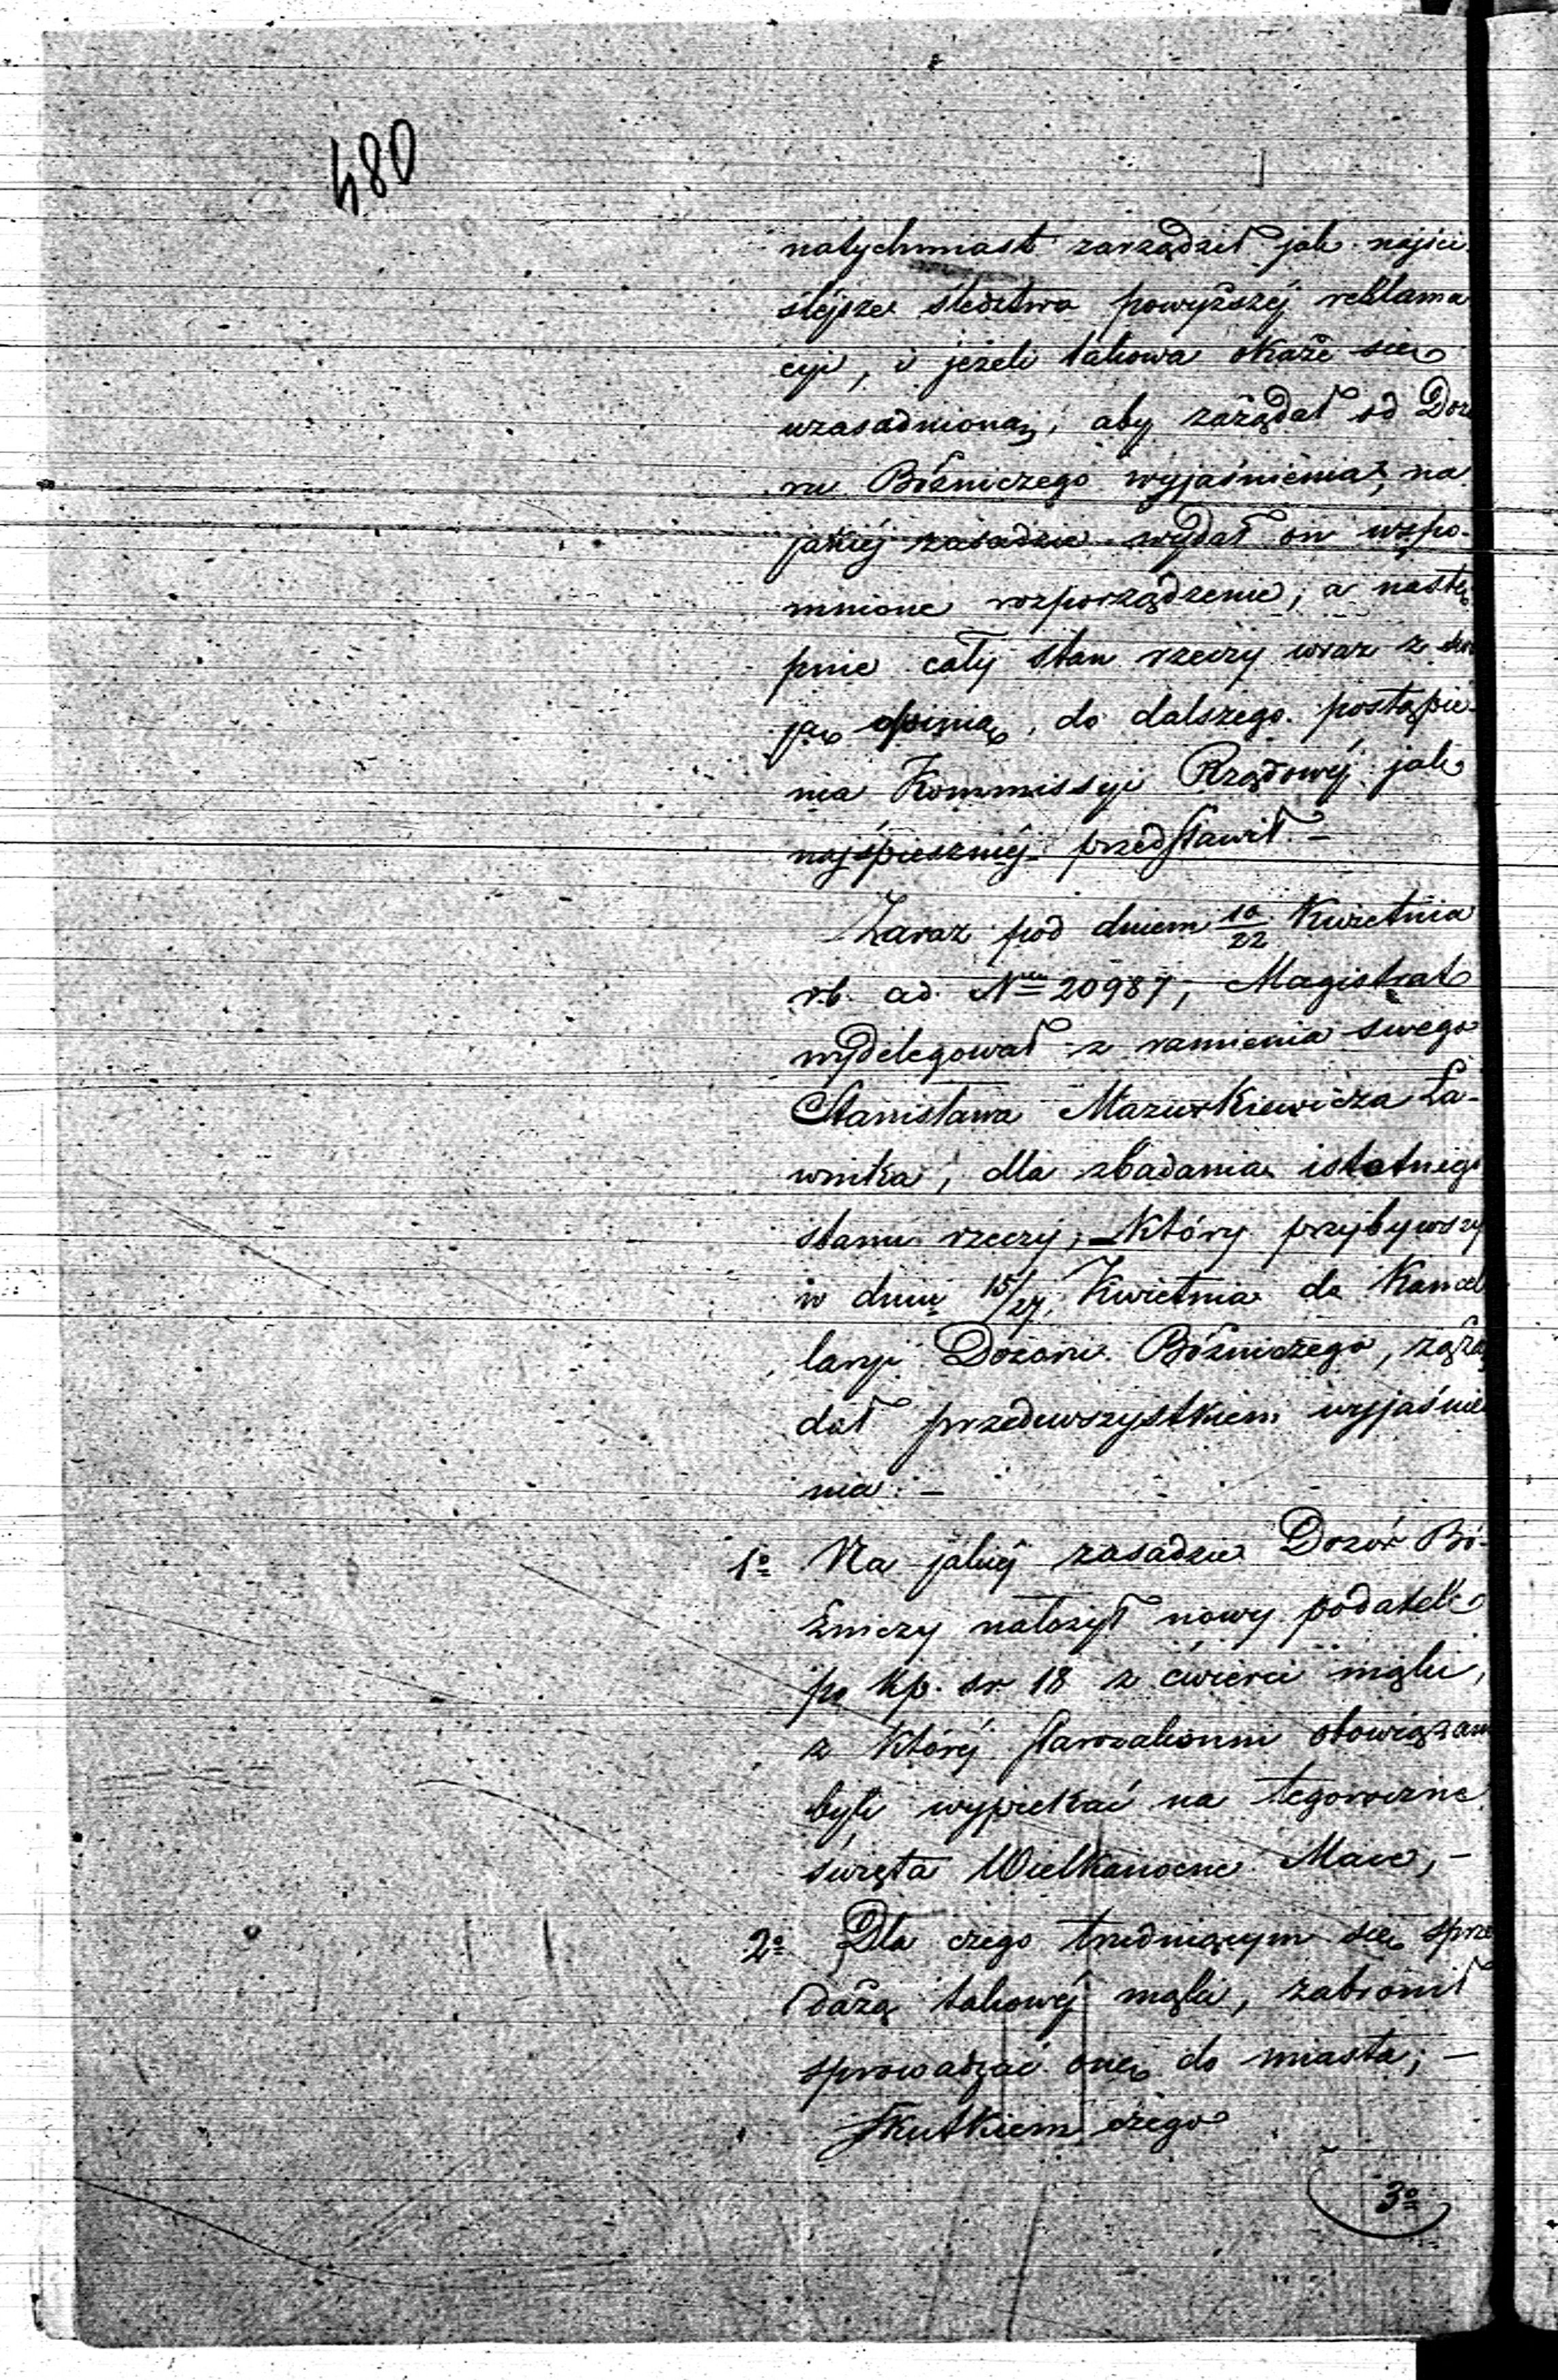 480
natychmiast zarządził jak najści
ślejsze śledztwo powyższéj reklama
cyi, i jeżeli takowa okaże się
uzasadnioną, aby zażądał od Dozo
ru Bóżniczego wyjaśnienia, na
jakiéj zasadzie wydał on wspo-
mnione rozporządzenie, a nastę
pnie cały stan rzeczy wraz z swo
ją opinią, do dalszego postąpie-
nia Kommissyi Rządowéj jak
najśpieszniéj przedstawił. –
Zaraz pod dniem 10/22 Kwietnia
r.b. ad Nrum 20987, Magistrat
wydelegował z ramienia swego
Stanisława Mazurkiewicza Ła-
wnika, dla zbadania istotnego
stanu rzeczy, który przybywszy
w dniu 15/27 Kwietnia do Kancel
laryi Dozoru Bóżniczego, zażą
dał przedewszystkiem wyjaśnie
nia: –
1o Na jakiéj zasadzie Dozór Bó-
żniczy nałożył nowy podatek
po kp. sr 18 z ćwierci mąki,
z któréj starozakonni obowiązani
byli wypiekać na tegoroczne
święta Wielkanocne Mace, –
2o Dla czego trudniącym się sprze
dażą takowéj mąki, zabronił
sprowadzać onę do miasta; –
Skutkiem czego
3o